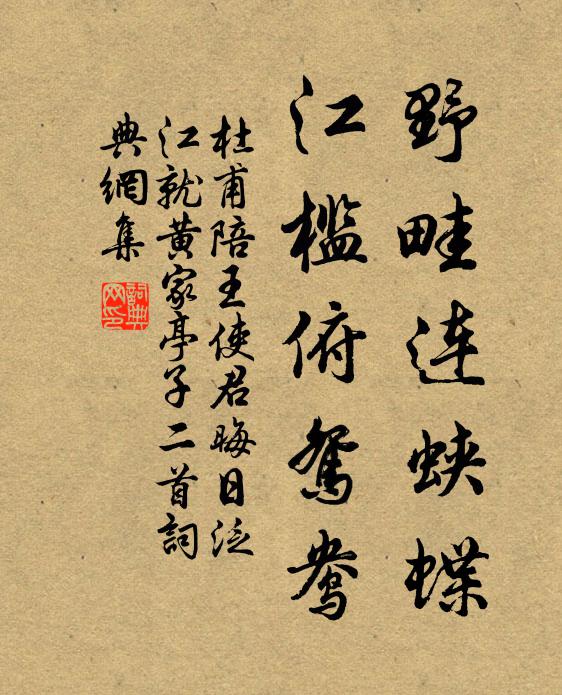 野畦連蛺蝶
江檻俯鴛鴦
杜甫陪王使君晦日泛
江就黄家亭子二首詞
典網集
詞典
网印